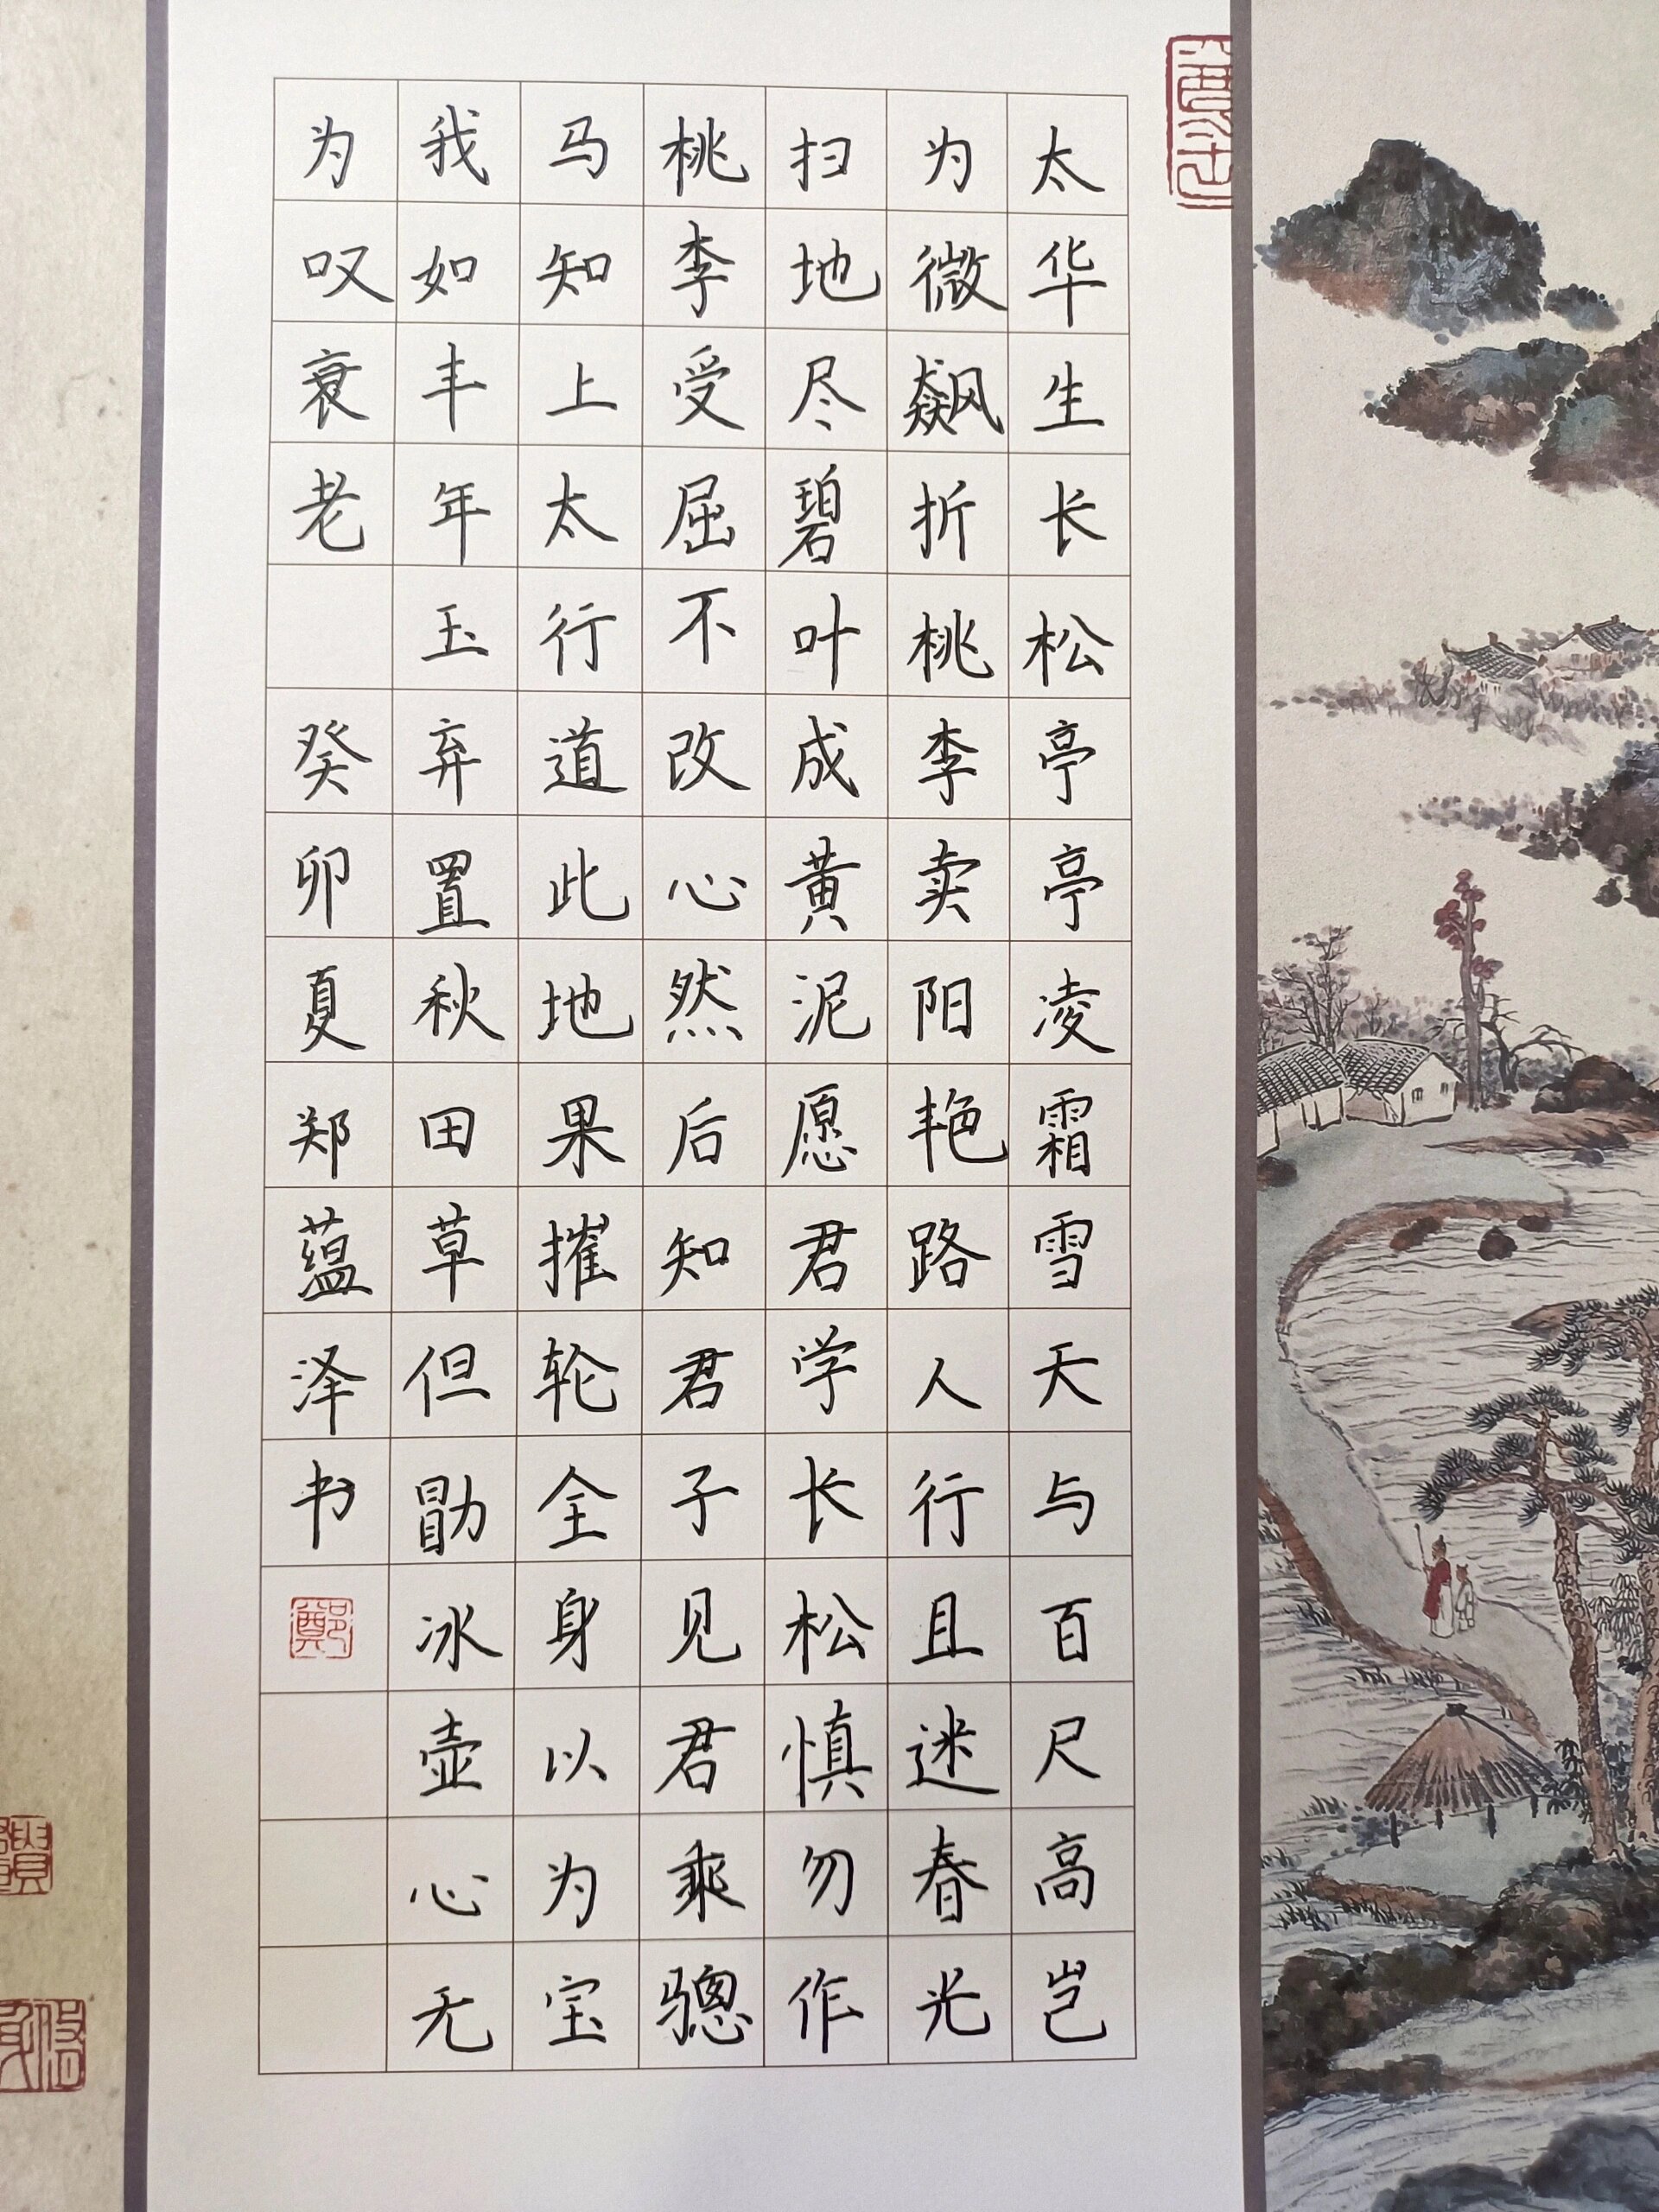 太华生长松亭亭凌霜雪天与百尺高岂
为微飙折桃李卖阳艳路人行且迷春光
扫地尽碧叶成黄泥愿君学长松慎勿作
桃李受屈不改心然后知君子见君乘骢
马知上太行道此地果摧轮全身以为宝
我如丰年玉弃置秋田草但勖冰壶心无
为叹衰老 癸卯夏郑蕴泽书
鄭